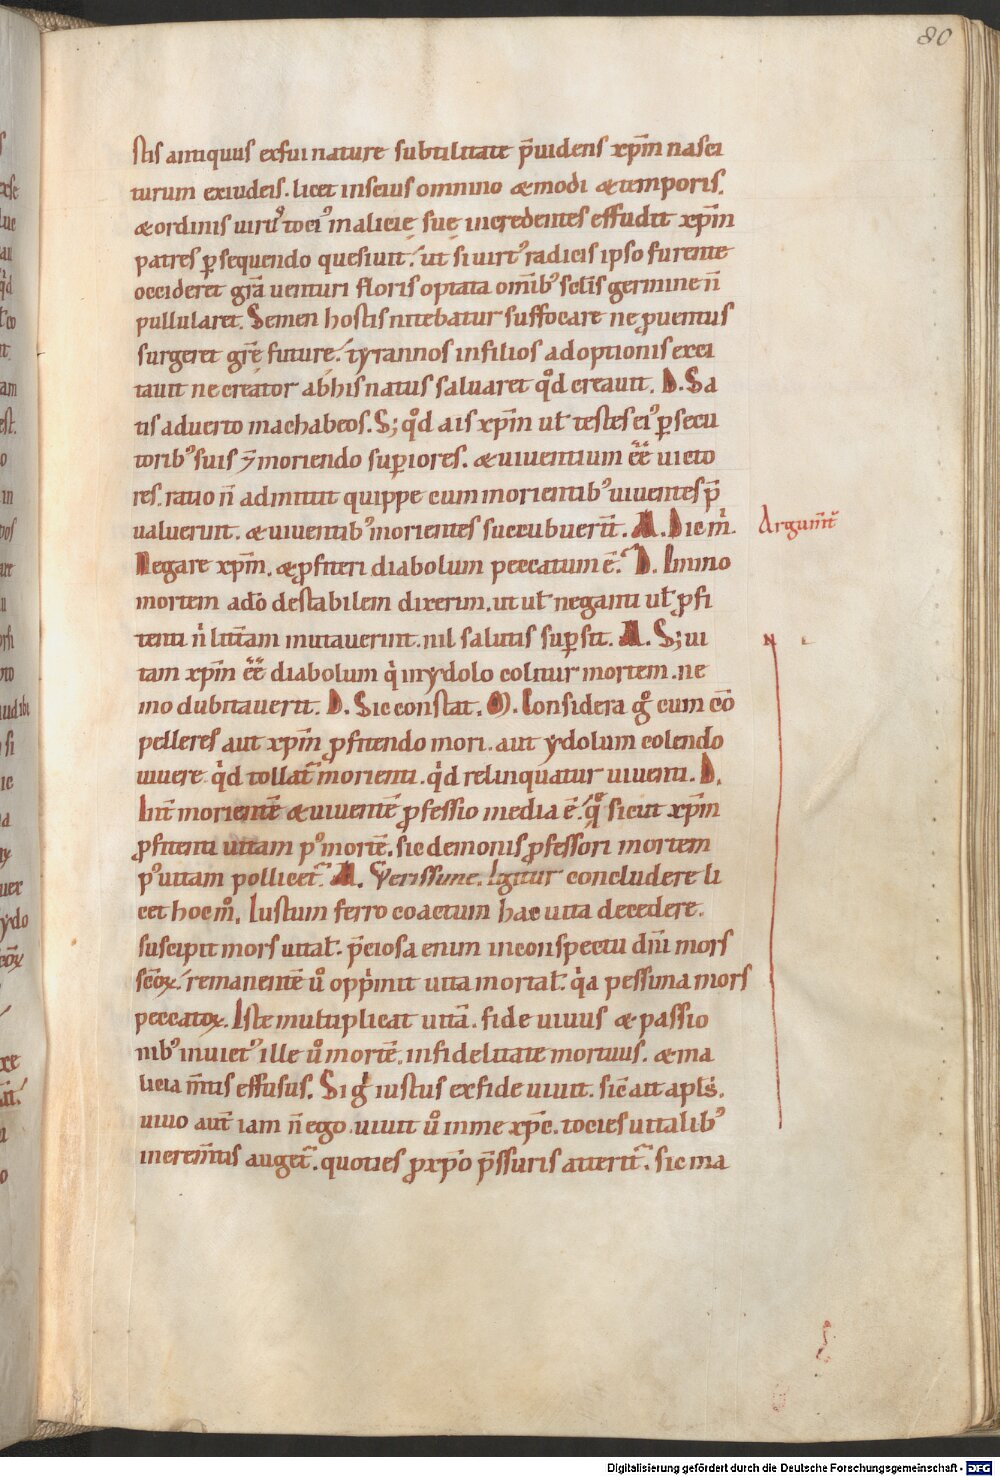 80
stis antiquus exsui nature subtilitate p̄uidens xp̄m nasci
turum exiudeis. licet inscius omnino & modi & temporis.
& ordinis uiruꝰ tociꝰ malicię suę incredentes effudit xp̄m
patres ꝑsequendo quesiuit. ut si uirtꝰ radicis ipso furente
occideret gr̄a uenturi floris optata om̄ibꝰ sc̄lis germine n̄
pullularet. Semen hostis nitebatur suffocare ne ꝓuentus
surgeret gr̄ę future. tyrannos in filios adoptionis exci
tauit ne creator abhis natus saluaret qd̊ creauit. D. Sa
tis aduerto machabeos. S; qd̊ ais xp̄m ul̄ testes eiꝰ ꝑsecu
toribꝰ suis ⁊ moriendo suꝑiores. & uiuentium ēē uicto
res. ratio n̄ admittit quippe cum morientibꝰ uiuentes p̄
ualuerint. & uiuentibꝰ morientes succubuerīt. A. Dic m̄.
Argum̄t̄
Negare xp̄m. & ꝓfiteri diabolum peccatum ē. D. Immo
mortem adō destabilem dixerim. ut ul̄ neganti ul̄ ꝓfi
tenti n̄ litt̄am mutauerint. nil salutis suꝑsit. A. S; ui
N
tam xp̄m ēē diabolum q̇ in ydolo colitur mortem. ne
mo dubitauerit. D. Sic constat. M. Considera g̊ cum cō
pelleres aut xp̄m ꝓfitendo mori. aut ydolum colendo
uiuere q̇d tollat̄ morienti. q̇d relinquatur uiuenti. D.
Int̄ morientē & uiuentē ꝓfessio media ē. q̊ sicut xp̄m
ꝓfitenti uitam pꝰ mortē. sic demonis ꝓfessori mortem
pꝰ uitam pollicet̄. A. Verissime. Igitur concludere li
cet hoc m̊. Iustum ferro coactum hac uita decedere.
suscipit mors uital̄. p̄ciosa enim inconspectu dn̄i mors
sc̄oꝝ. remanentē u̇o oppṁit uita mortal̄. q̇a pessima mors
peccatoꝝ. Iste multiplicat uitā. fide uiuus & passio
nibꝰ inuictꝰ ille u̇o mortē. infidelitate mortuus. & ma
licia m̄tis effusus. Si g̊ iustus ex fide uiuit. sic̄ ait apl̄s.
uiuo aut̄ iam n̄ ego. uiuit u̇o in me xp̄c. tocies uitalibꝰ
increm̄tis auget̄. quoties ꝓ xp̄o p̄ssuris atterit̄. sic ma
Digitalisierung gefördert durch die Deutsche Forschungsgemeinschaft - DFG